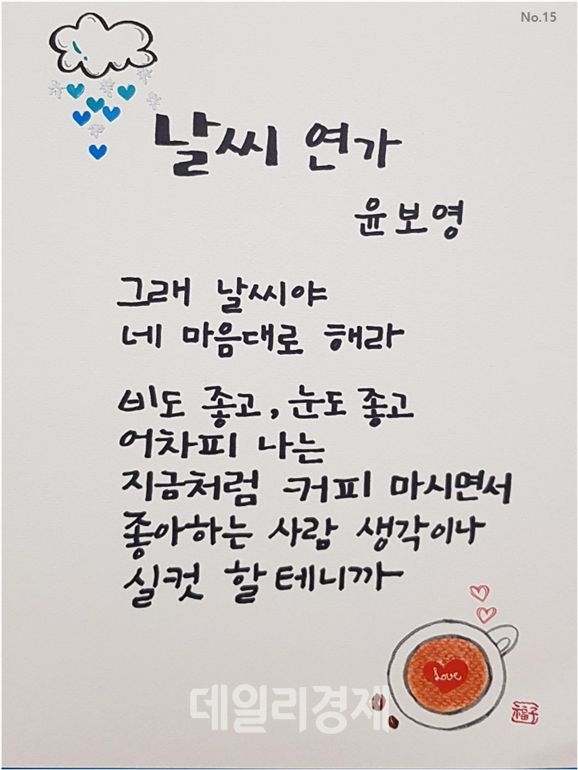 No.15
날씨 연가
윤보영
그래 날씨야
네 마음대로 해라
비도 좋고, 눈도 좋고
어차피 나는
지금처럼 커피 마시면서
좋아하는 사람 생각이나
실컷 할테니까
Love
데일리경제